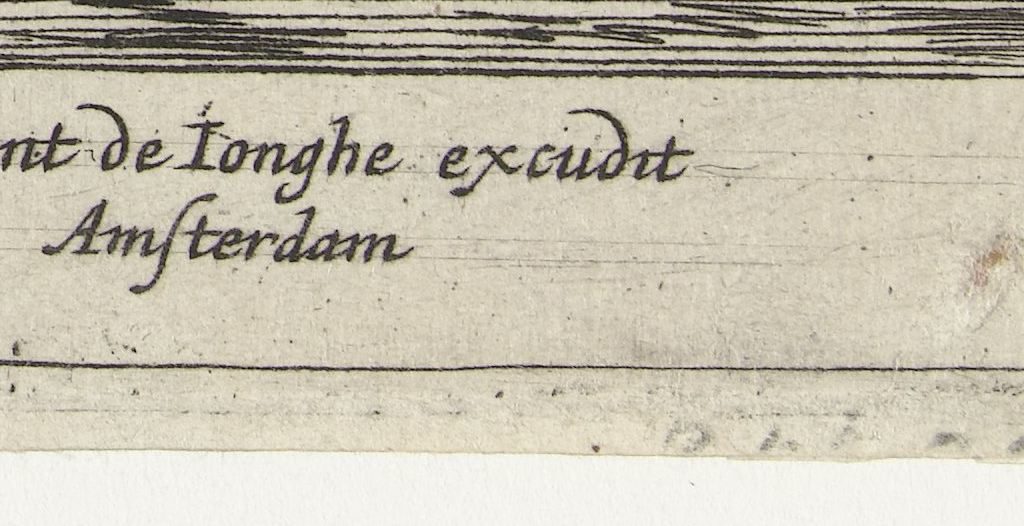 nt de Ionghe excudit
Amſterdam